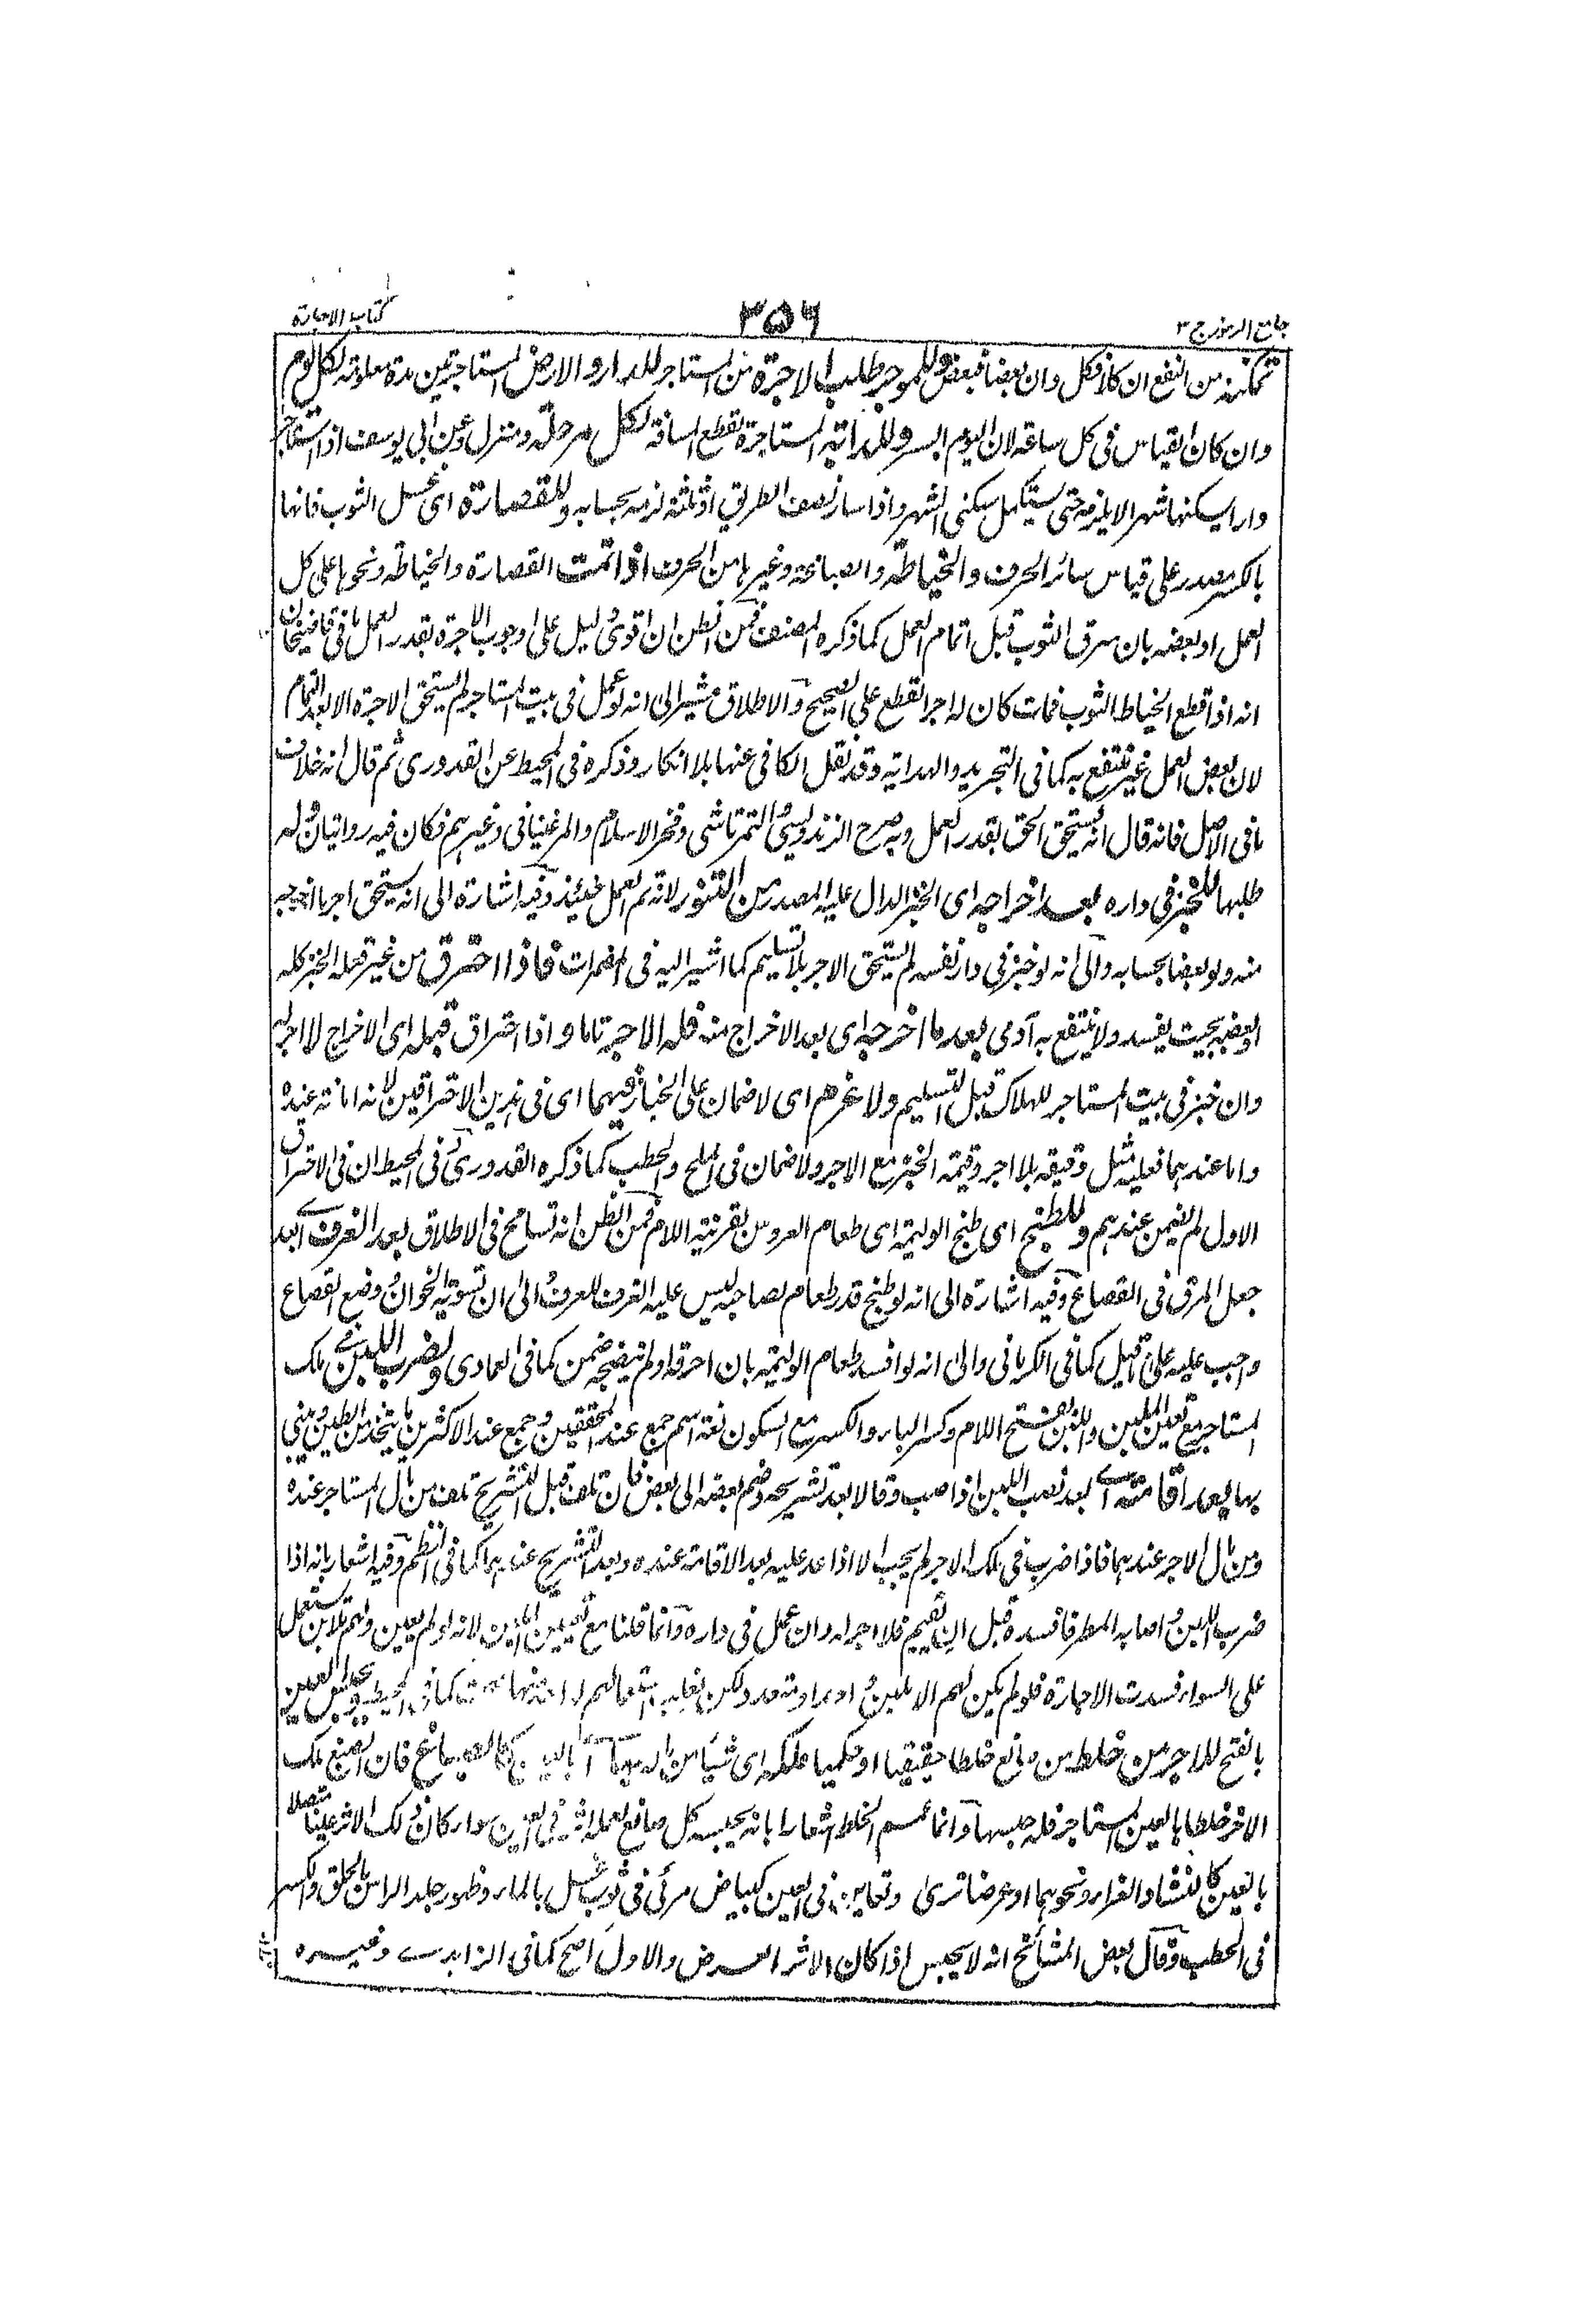 جامع الرموز ج ٣
٣٥٦
كتاب الاجارة
تمكنه من النفع ان كلا فكل وان بعضا فبعض وللموجر طلب الاجرة من المستاجر للدار والارض المستاجرتين مدة معلومة لكل يوم
وان كان القياس فى كل ساعة لان اليوم ايسر وللدابة المستاجرة لقطع المسافة لكل مرحلة ومنزل وعن ابى يوسف اذا استاجر
دارا يسكنها شهرا لا يلزمه حتى يستكمل سكنى الشهر واذا سار نصف الطريق او ثلثه لزمه بحسابه وللقصارة اى غسل الثوب فانها
بالكسر مصدر على قياس سائر الحرف والخياطة والصباغة وغيرها من الحرف اذا تمت القصارة والخياطة ونحوها على كل
العمل او بعضه بان سرق الثوب قبل اتمام العمل كما ذكره المصنف فمن الظن ان اقوى دليل على وجوب الاجرة بقدر العمل ما فى قاضيخان
انه اذا قطع الخياط الثوب فمات كان له اجر القطع على الصحيح والاطلاق مشير الى انه لو عمل فى بيت المستاجر لم يستحق الاجرة الا بعد التمام
لان بعض العمل غير منتفع به كما فى التجريد والهداية وقد نقل الكافى عنها بلا انكار وذكره فى المحيط عن القدورى ثم قال انه خلاف
ما فى الاصل فانه قال انه يستحق الحق بقدر العمل وبه صرح الزندويسى والتمرتاشى وفخر الاسلام والمرغينانى وغيرهم فكان فيه روايتان وله
طلبها للخبز فى داره بعد اخراجه اى الخبز الدال عليه المصدر من التنور لانه تم العمل حينئذ وفيه اشارة الى انه يستحق اجر ما اخرجه
منه ولو بعضا بحسابه والى انه لو خبز فى دار نفسه لم يستحق الاجر بلا تسليم كما اشير اليه فى المضمرات فاذا احترق من غير فعله الخبز كله
او بعضه بحيث يفسد ولا ينتفع به آدمى بعد ما اخرجه اى بعد الاخراج منه فله الاجر تاما واذا احترق قبله اى الاخراج لا اجر له
وان خبز فى بيت المستاجر للهلاك قبل التسليم ولا غرم اى لا ضمان على الخباز فيهما اى فى هذين الاحتراقين لانه امانة عنده
واما عندهما فعليه مثل دقيقه بلا اجر وقيمة الخبز مع الاجر ولا ضمان فى الملح والحطب كما ذكره القدورى وفى المحيط ان فى الاحتراق
الاول لم يضمن عندهم وللطبخ اى طبخ الوليمة اى طعام العروس بقرينة اللام فمن الظن انه تسامح فى الاطلاق بعد الغرف اى بعد
جعل المرق فى القصاع وفيه اشارة الى انه لو طبخ قدر طعام لصاحبه ليس عليه الغرف للعرف والى ان تسوية الخوان وضع القصاع
واجب عليه على ما قيل كما فى الكرمانى والى انه لو افسد طعام الوليمة بان احرقه او لم ينضجه ضمن كما فى العمادى ولضرب اللبن فى ملك
المستاجر مع تعيين الملبن واللبن بفتح اللام وكسر الباء والكسر مع السكون لغة اسم جمع عند المحققين وجمع عند الاكثرين ما يتخذ من الطين ويبنى
بها بعد اقامته اى بعد نصب اللبن اذا صب وقالا بعد تشريحه وضم بعضه الى بعض فان تلف قبل التشريح تلف من مال المستاجر عنده
ومن مال الاجير عندهما فاذا ضرب فى ملك الاجر لم يجب الا اذا عد عليه بعد الاقامة عنده وبعد التشريح عندهما كما فى النظم وفيه اشعار بانه اذا
ضرب اللبن واصابه المطر فافسده قبل ان يقيم فلا اجر له وان عمل فى داره وانما قلنا مع تعيين الملبن لانه لو لم يعين ولهم ملابن يستعمل
على السواء فسدت الاجارة فلو لم يكن لهم الا ملبن واحد او متعدد ولكن يغلب استعمالهم لواحد منها صحت كما فى المحيط ويحبس العين
بالفتح للاجر من خلط من صانع خلطا حقيقيا او حكميا ملكه اى شيئا من ماله بها اى بالعين كالصباغ فان الصبغ ملك
الاخر خلطا بالعين المستاجر فله حبسها وانما عمم الخلط اشعارا بانه يحبسه كل صانع لعمله اثر فى العين سواء كان ذلك الاثر عينا متصلا
بالعين كالنشا والغراء ونحوهما او عرضا ترى وتعاين فى العين كبياض مرئى فى ثوب غسل بالماء وظهور جلد الراس بالحلق والكسر
فى الحطب وقال بعض المشائخ انه لا يحبس اذا كان الاثر العرض والاول اصح كما فى الزاهدى وغيره